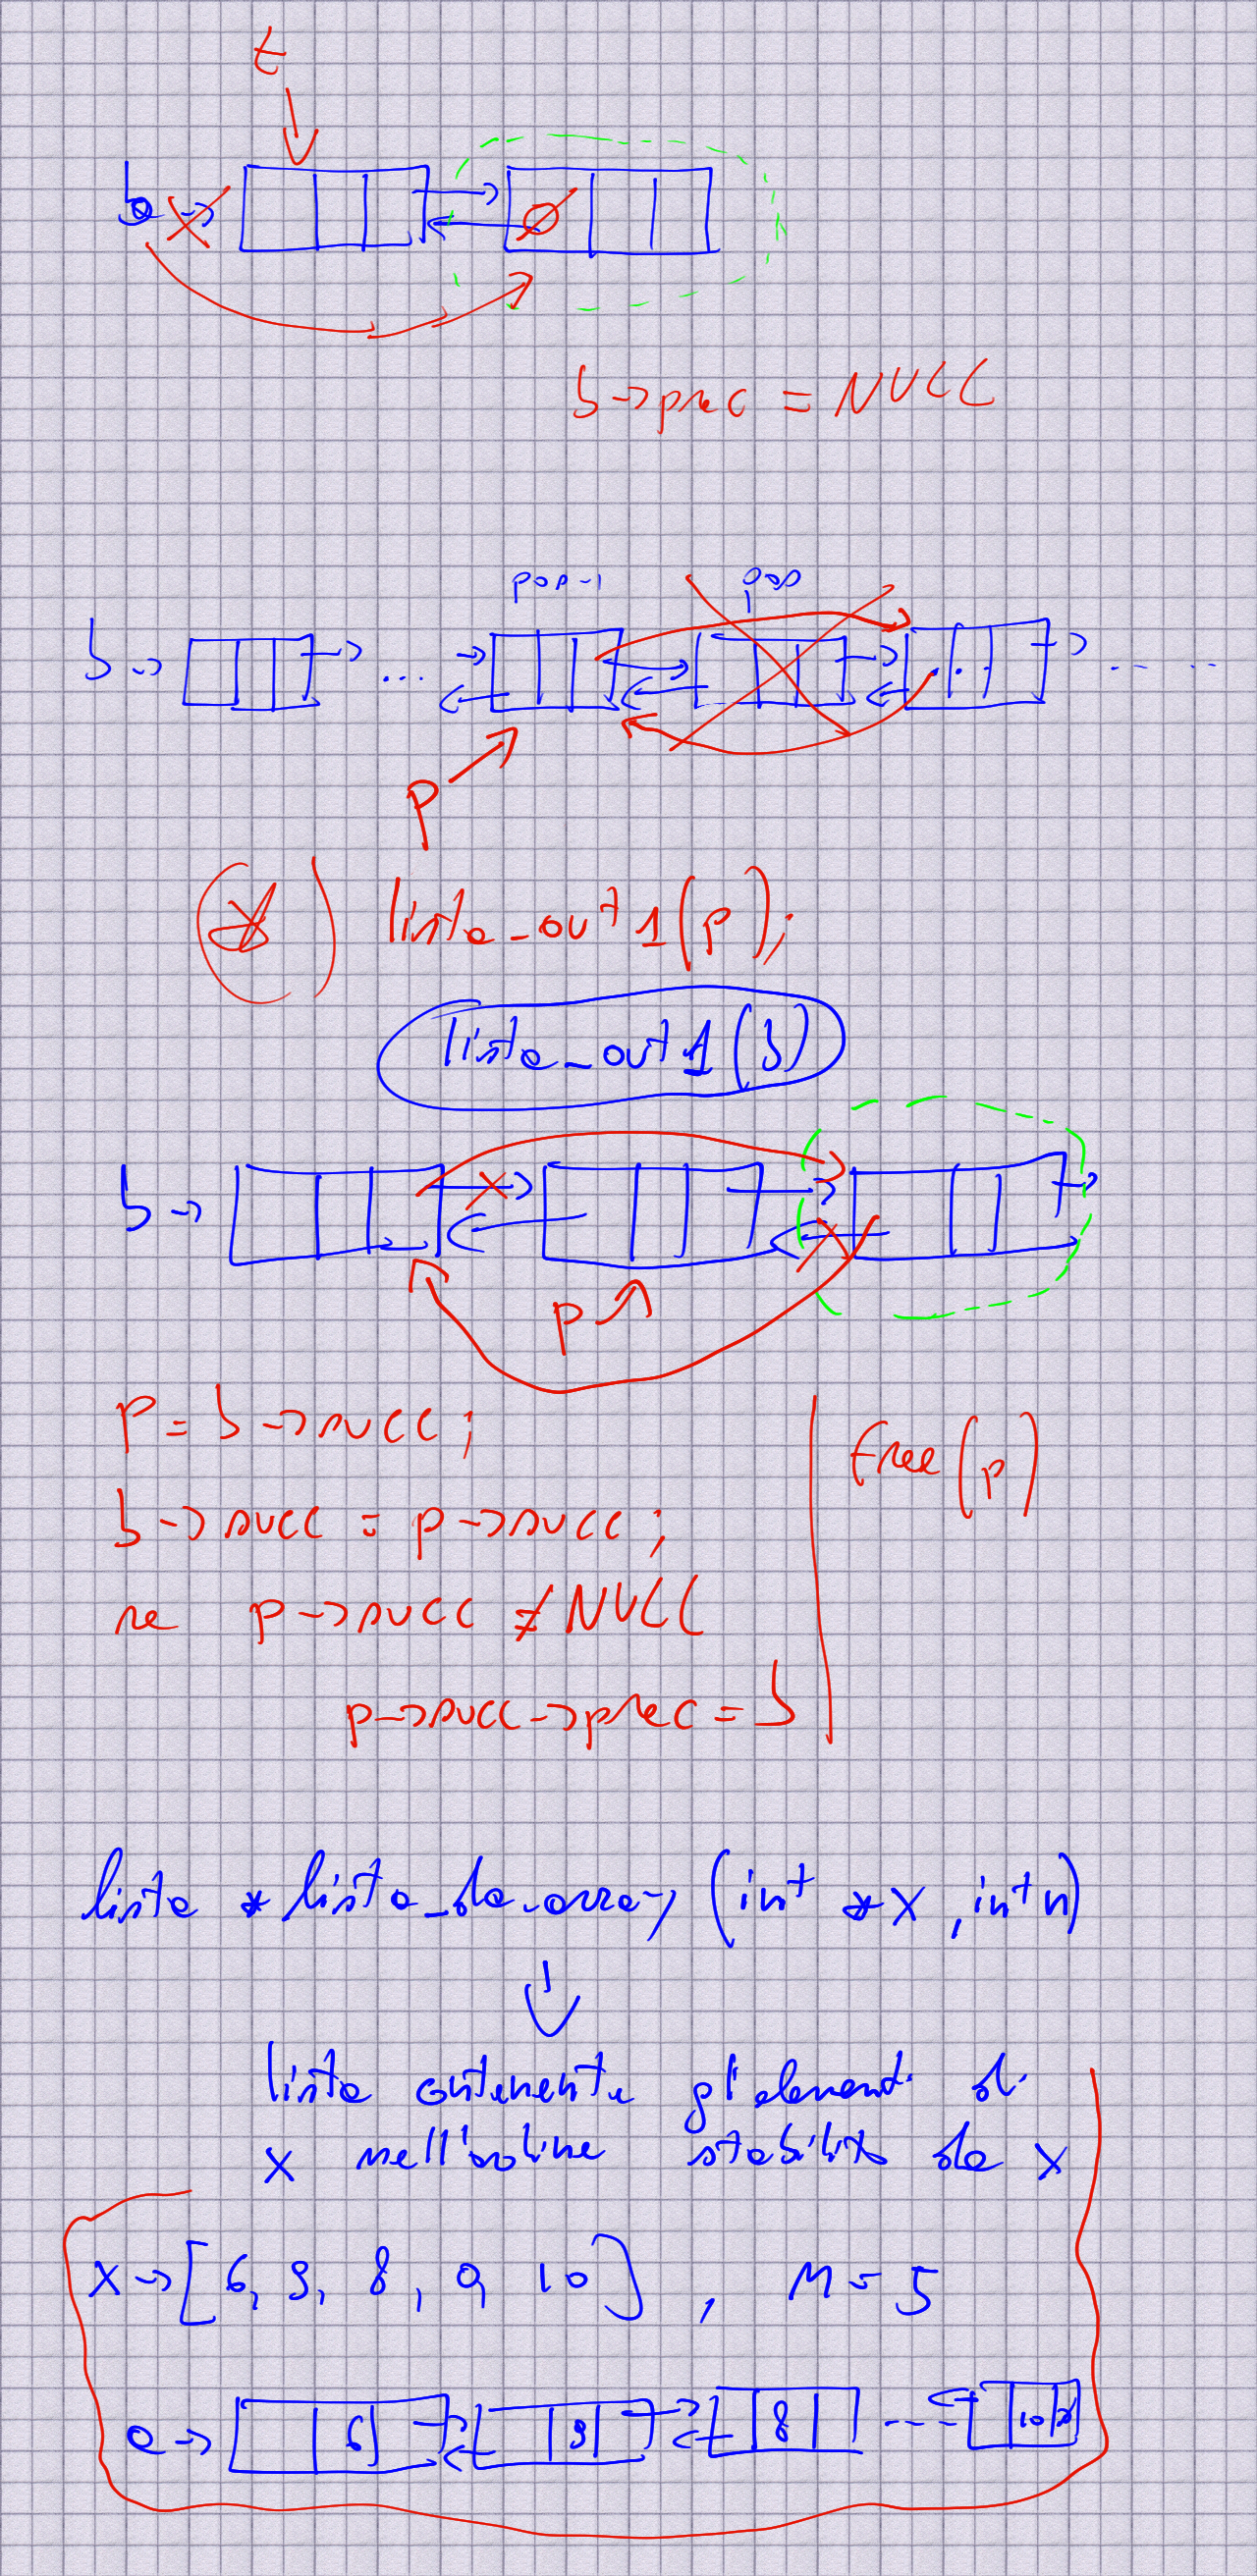 t
b →
Ø
b → prec = NULL
pos-1 pos
b → ... ......
p
lista_out1(p);
lista_out1(b)
b →
p
p = b → succ;
free(p)
b → succ = p → succ;
se p → succ ≠ NULL
p → succ → prec = b
lista *lista_da_array (int *x, int n)
lista contenente gl'elementi di
x nell'ordine stabilito da x
x → [6, 9, 8, 0, 10], n = 5
a → 6 9 8 ---- 10